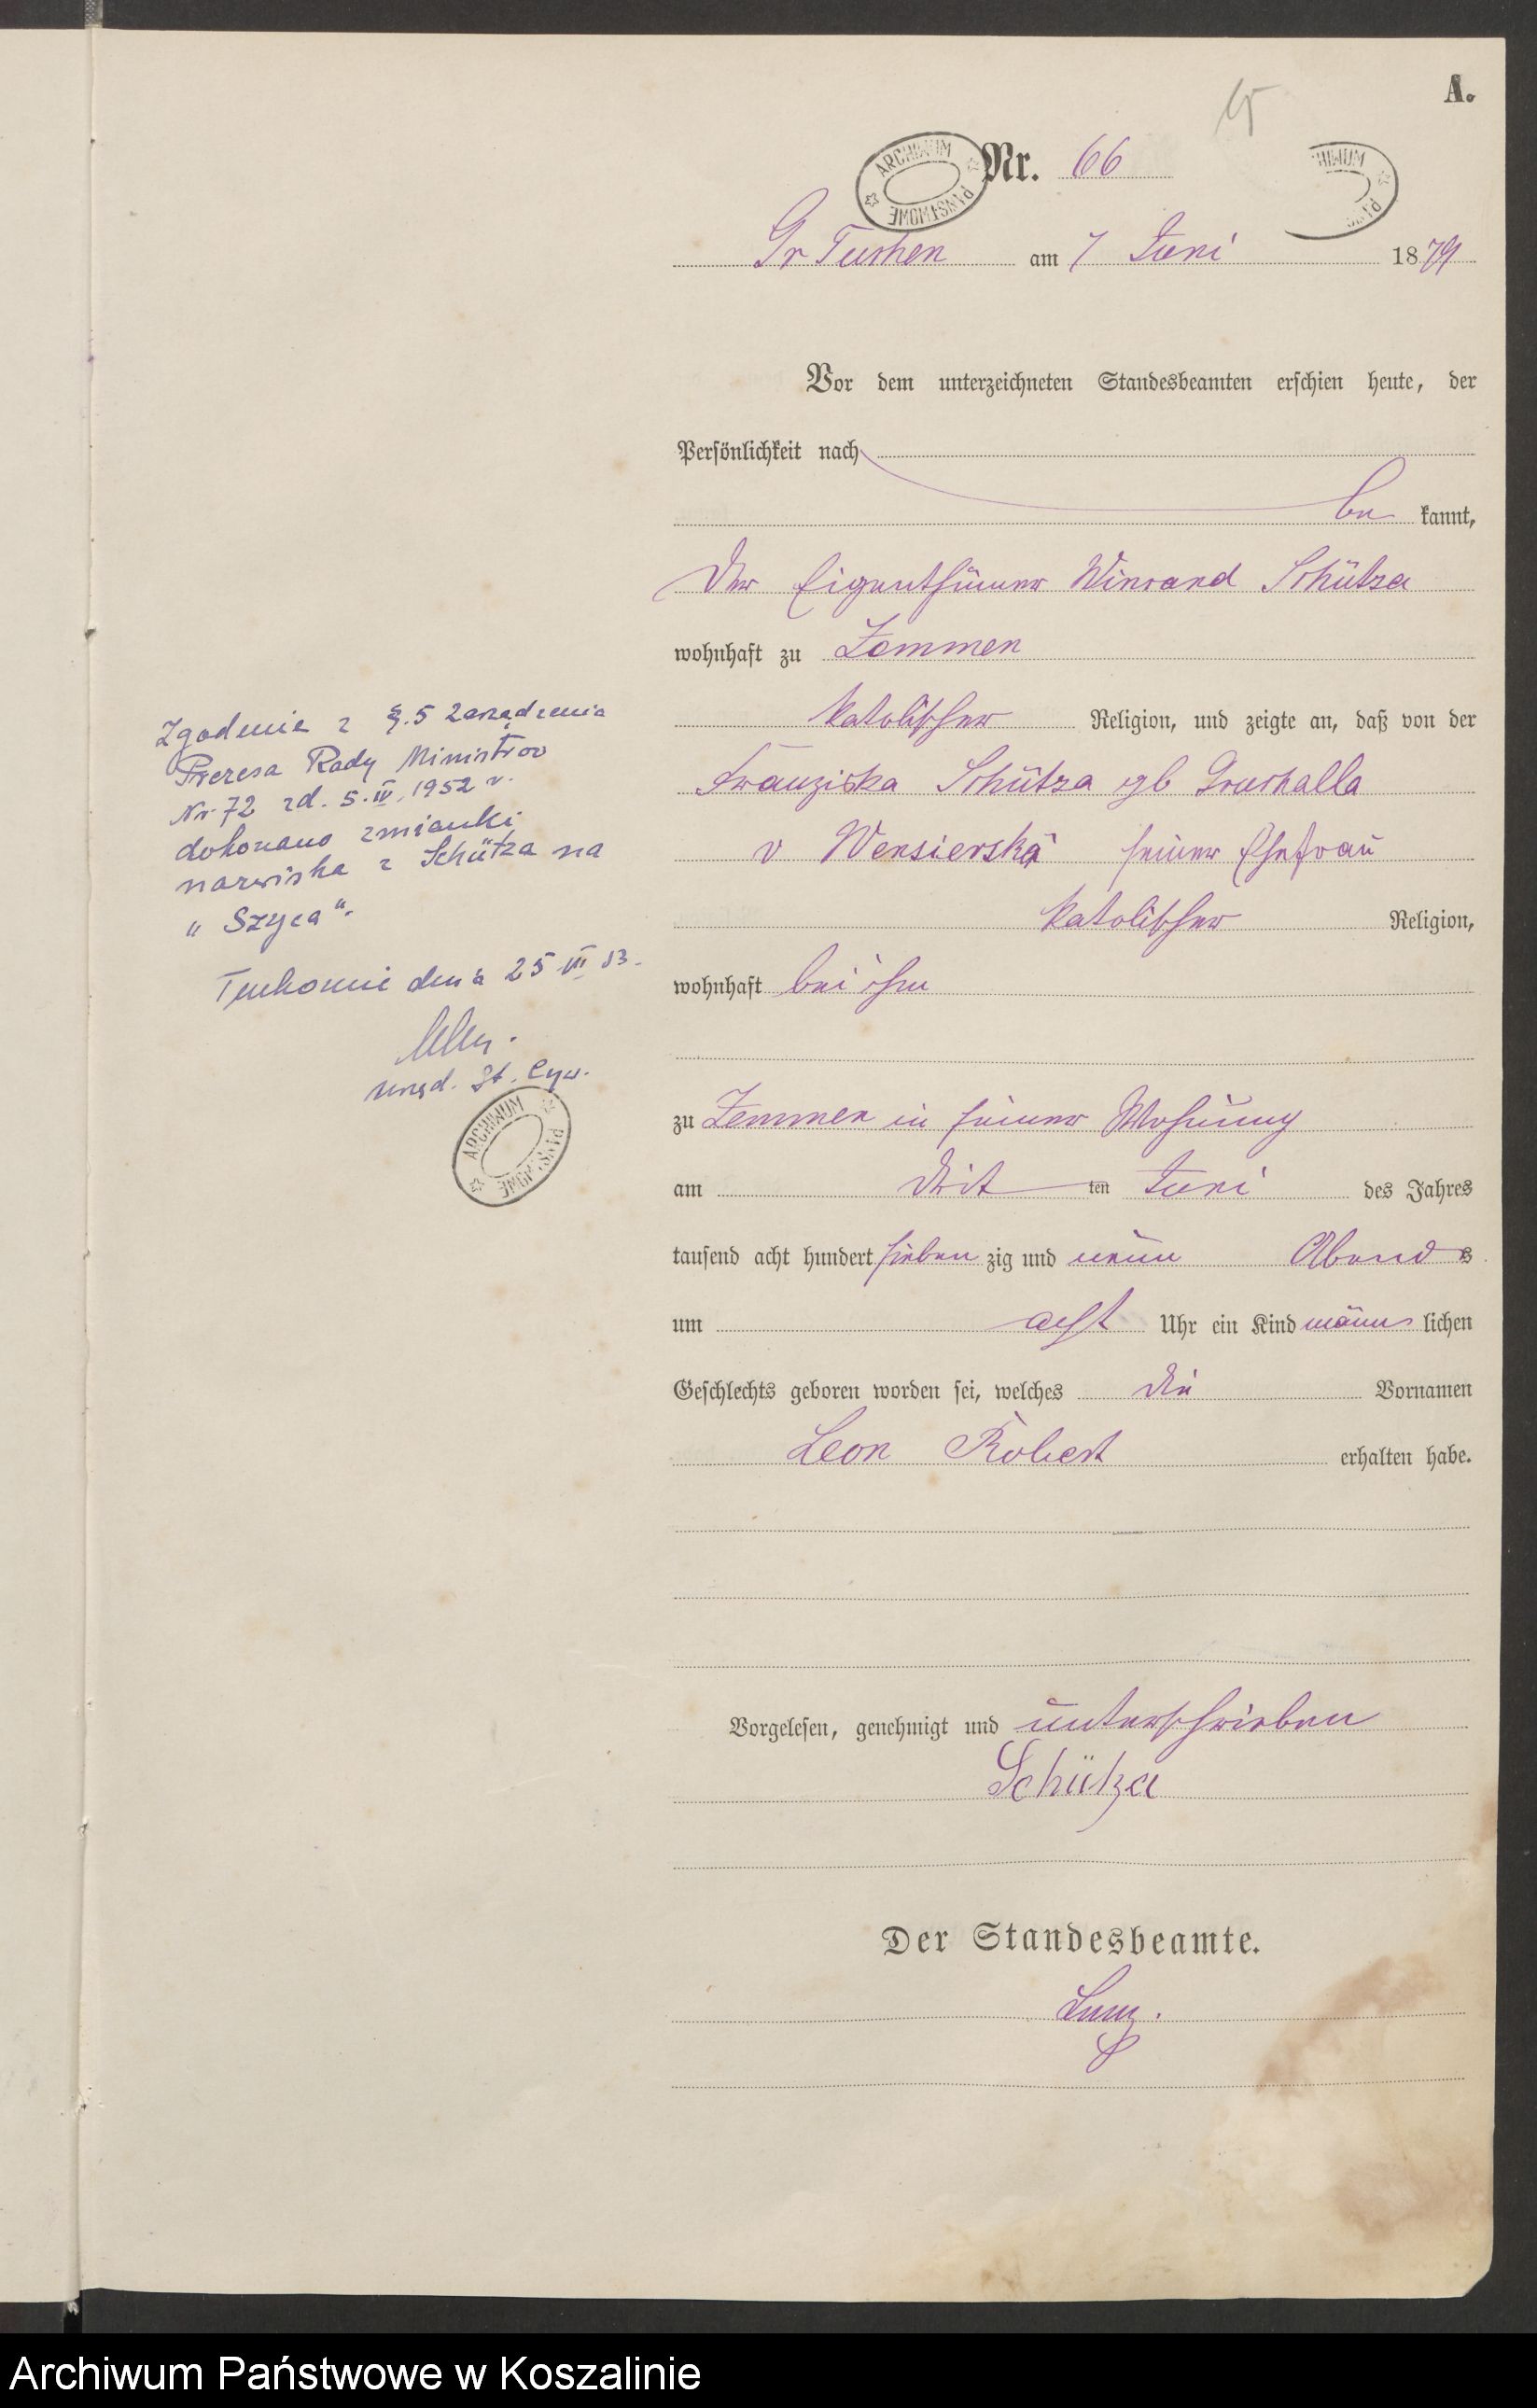 A.
Nr. 66
Gr Tuchen am 7 Juni 1879
Vor dem unterzeichneten Standesbeamten erschien heute, der
Persönlichkeit nach
be kannt,
der Eigenthümer Vincand Schütza
wohnhaft zu Zemmen
katolischer Religion, und zeigte an, daß von der
Franziska Schütza gb Gruchalla
v Wensierska seiner Ehefrau
katolischer Religion,
wohnhaft bei ihm
zu Zemmen in seiner Wohnung
am drit ten Juni des Jahres
tausend acht hundert sieben zig und neun Abend s
um acht Uhr ein Kind männ lichen
Geschlechts geboren worden sei, welches die Vornamen
Leon Robert erhalten habe.
Vorgelesen, genehmigt und unterschrieben
Schütza
Der Standesbeamte.
Zgodnie z §.5 Zarządzenia
Prezesa Rady Ministrów
Nr 72 zd. 5.IV.1952 r.
dokonano zmianki
nazwiska z Schütza na
„Szyca".
Tuchomie dnia 25 III 53.
urzęd. St. Cyw.
ARCHIWUM PAŃSTWOWE
ARCHIWUM PAŃSTWOWE
HIWUM PAŃS
Archiwum Państwowe w Koszalinie